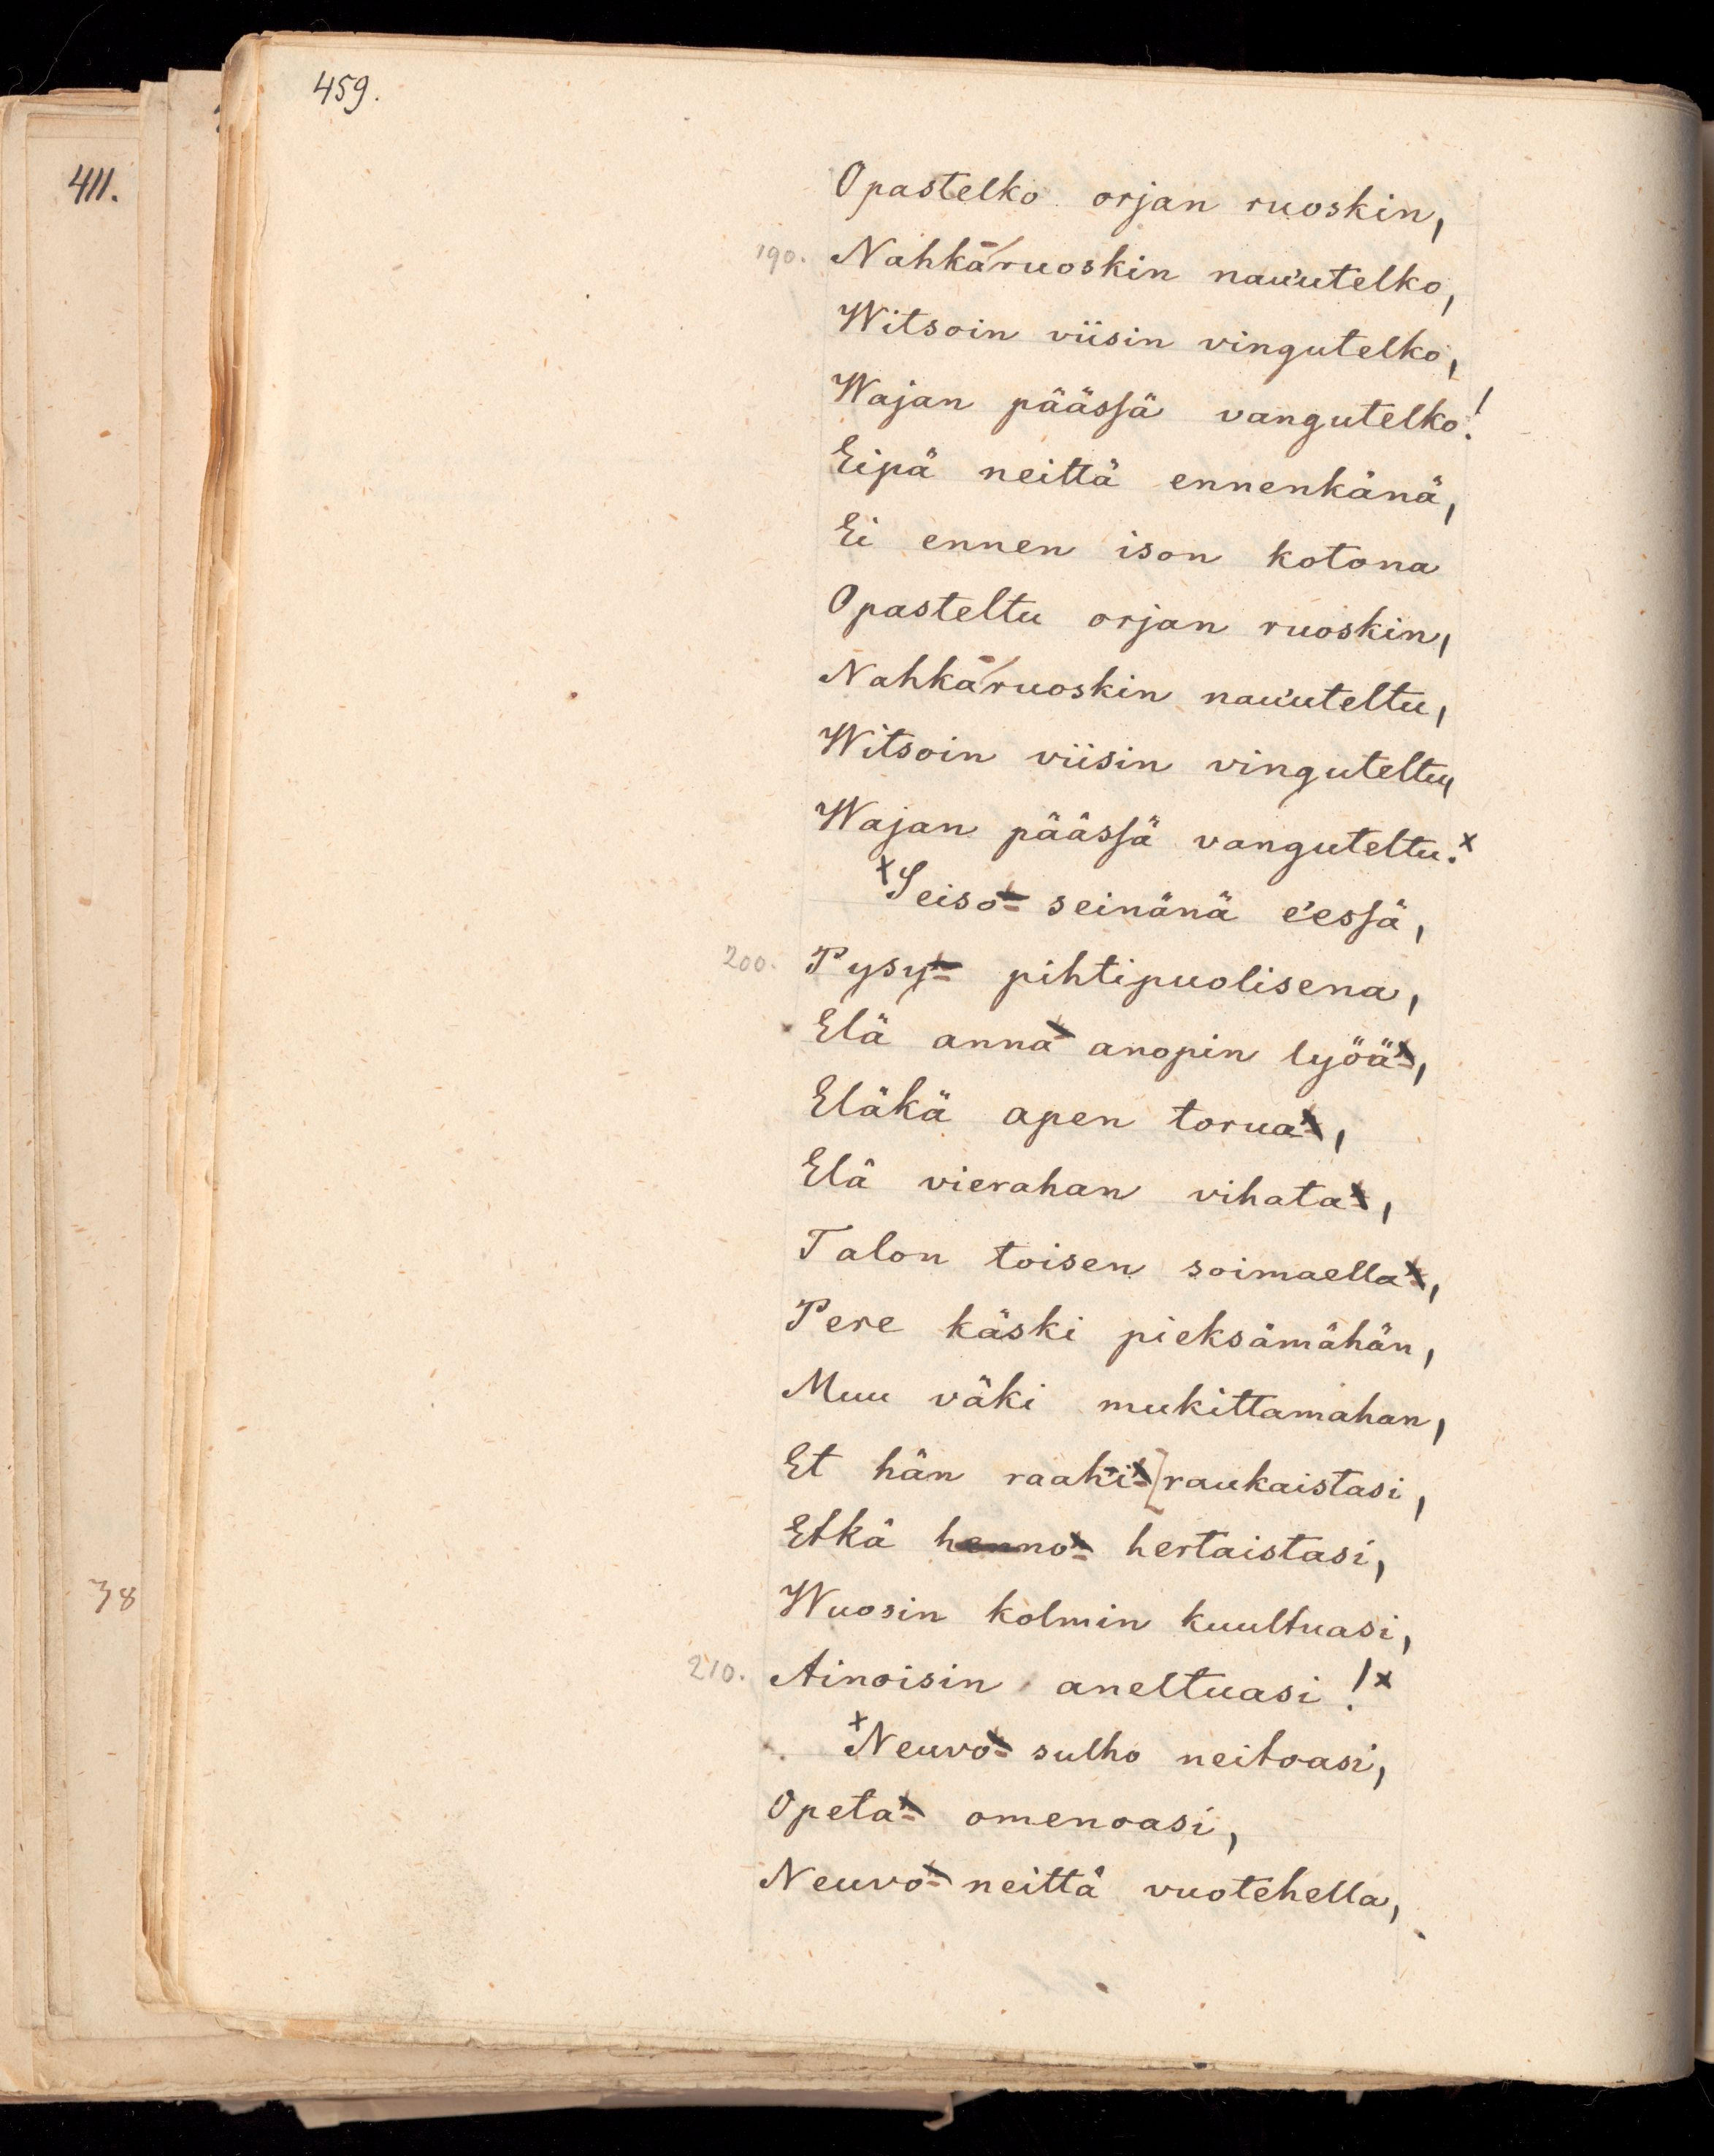 459.
411.
Opastelko orjan ruoskin,
190. Nahka-ruoskin nau'utelko,
Witsoin viisin vingutelko,
Wajan päässä vangutelko!
Eipä neittä ennenkänä,
Ei ennen ison kotona
Opasteltu orjan ruoskin,
Nahka-ruoskin nau'uteltu,
Witsoin viisin vinguteltu,
Wajan päässä vanguteltu.x
xSeiso- seinänä e'essä,
200. Pysy- pihtipuolisena,
Elä anna anopin lyöä-,
Eläkä apen torua-,
Elä vierahan vihata-,
Talon toisen soimaella-,
Pere käski pieksämähän,
Muu väki mukittamahan,
Et hän raahi-[raukaistasi,
Etkä henno- hertaistasi,
Wuosin kolmin kuultuasi,
38
210. Ainoisin aneltuasi!x
xNeuvo- sulho neitoasi,
Opeta- omenoasi,
Neuvo- neittä vuotehella,